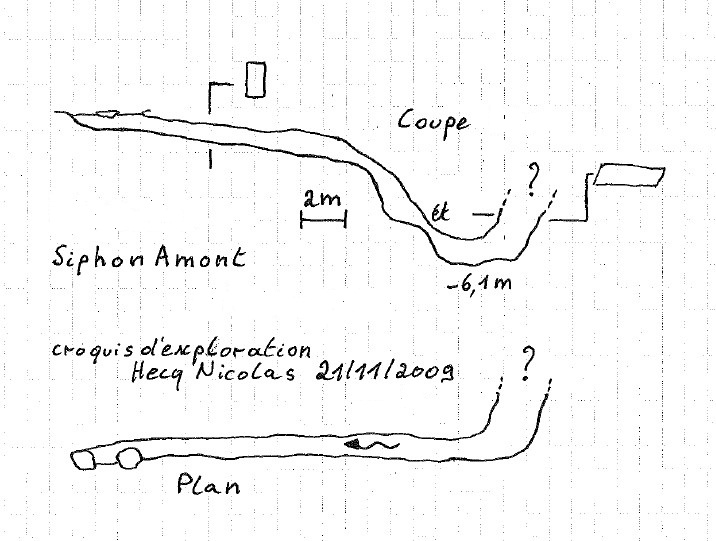 Coupe
?
2m
ét
Siphon Amont
-6,1m
croquis d'exploration
Hecq Nicolas 21/11/2009
?
Plan